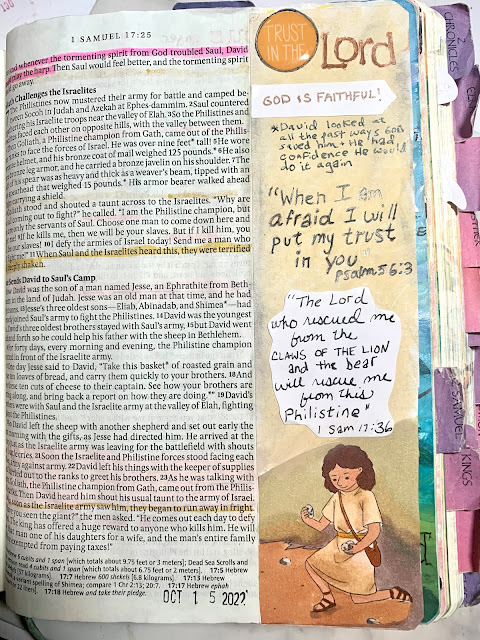 1 SAMUEL 17:25
whenever the tormenting spirit from God troubled Saul, David
play the harp. Then Saul would feel better, and the tormenting spirit
go away.
Challenges the Israelites
Philistines now mustered their army for battle and camped be-
Socoh in Judah and Azekah at Ephes-dammim. 2Saul countered
his Israelite troops near the valley of Elah. 3So the Philistines and
faced each other on opposite hills, with the valley between them.
Goliath, a Philistine champion from Gath, came out of the Philis-
to face the forces of Israel. He was over nine feet* tall! 5He wore
helmet, and his bronze coat of mail weighed 125 pounds.* 6He also
leg armor, and he carried a bronze javelin on his shoulder. 7The
his spear was as heavy and thick as a weaver's beam, tipped with an
spearhead that weighed 15 pounds.* His armor bearer walked ahead
carrying a shield.
stood and shouted a taunt across to the Israelites. "Why are
coming out to fight?" he called. "I am the Philistine champion, but
only the servants of Saul. Choose one man to come down here and
If he kills me, then we will be your slaves. But if I kill him, you
our slaves! 10I defy the armies of Israel today! Send me a man who
me!" 11When Saul and the Israelites heard this, they were terrified
deeply shaken.
Sends David to Saul's Camp
David was the son of a man named Jesse, an Ephrathite from Beth-
in the land of Judah. Jesse was an old man at that time, and he had
13Jesse's three oldest sons—Eliab, Abinadab, and Shimea*—had
joined Saul's army to fight the Philistines. 14David was the youngest
David's three oldest brothers stayed with Saul's army, 15but David went
and forth so he could help his father with the sheep in Bethlehem.
forty days, every morning and evening, the Philistine champion
in front of the Israelite army.
One day Jesse said to David, "Take this basket* of roasted grain and
loaves of bread, and carry them quickly to your brothers. 18And
ten cuts of cheese to their captain. See how your brothers are
along, and bring back a report on how they are doing.*" 19David's
were with Saul and the Israelite army at the valley of Elah, fighting
the Philistines.
David left the sheep with another shepherd and set out early the
morning with the gifts, as Jesse had directed him. He arrived at the
as the Israelite army was leaving for the battlefield with shouts
cries. 21Soon the Israelite and Philistine forces stood facing each
army against army. 22David left his things with the keeper of supplies
hurried out to the ranks to greet his brothers. 23As he was talking with
Goliath, the Philistine champion from Gath, came out from the Philis-
Then David heard him shout his usual taunt to the army of Israel.
soon as the Israelite army saw him, they began to run away in fright.
you seen the giant?" the men asked. "He comes out each day to defy
The king has offered a huge reward to anyone who kills him. He will
man one of his daughters for a wife, and the man's entire family
exempted from paying taxes!"
6 cubits and 1 span [which totals about 9.75 feet or 3 meters]; Dead Sea Scrolls and
read 4 cubits and 1 span [which totals about 6.75 feet or 2 meters]. 17:5 Hebrew
kilograms]. 17:7 Hebrew 600 shekels [6.8 kilograms]. 17:13 Hebrew
a variant spelling of Shimea; compare 1 Chr 2:13; 20:7. 17:17 Hebrew ephah
liters]. 17:18 Hebrew and take their pledge.
OCT 15 2022
TRUST
IN THE
Lord
GOD IS FAITHFUL!
*David looked at
all the past ways God
saved him + He had
confidence He would
do it again
"When I am
afraid I will
put my trust
in you"
psalm 56:3
"The Lord
who rescued me
from the
CLAWS OF THE LION
and the bear
will rescue me
from this
Philistine"
1 Sam 17:36
2 CHRONICLES
KINGS